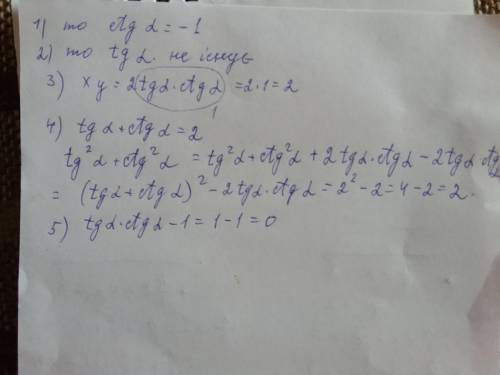 1) то ctg α = -1
2) то tg α не існує
3) xy = 2 tg α · ctg α = 2·1 = 2
1
4) tg α + ctg α = 2
tg²α + ctg²α = tg²α + ctg²α + 2 tg α · ctg α - 2 tg α · ctg α
= (tg α + ctg α)² - 2 tg α · ctg α = 2² - 2 = 4 - 2 = 2.
5) tg α · ctg α - 1 = 1 - 1 = 0